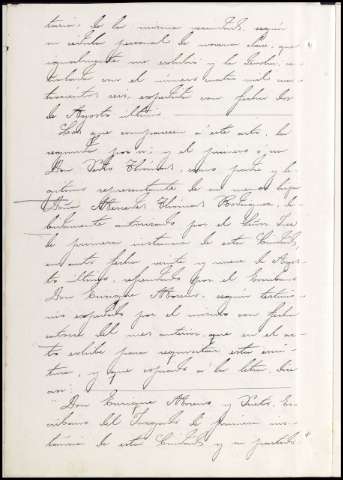 taria, de la misma vecindad, según
su cédula personal de novena clase, que
igualmente me exhibe y la devolví, se-
ñalada con el número cuatro mil cua-
trocientos seis, expedida con fecha dos
de Agosto último.
Los que comparecen á este acto, la
segunda por sí; y el primero ó sea
Don Sixto Thómas, como padre y le-
gítimo representante de su menor hija
Doña Mercedes Thómas Rodriguez, de-
bidamente autorizado por el Señor Juez
de primera instancia de esta Ciudad,
en auto fecha veinte y nueve de Agos-
to último, refrendado por el Escribano
Don Enrique Moreno, según testimo-
nio expedido por el mismo con fecha
catorce del mes anterior, que en el ac-
to exhibe para segmentar esta escri-
tura, y que copiado á la letra, dice
así:
Don Enrique Moreno y Nieto, Es-
cribano del Juzgado de primera ins-
tancia de esta Ciudad y su partido